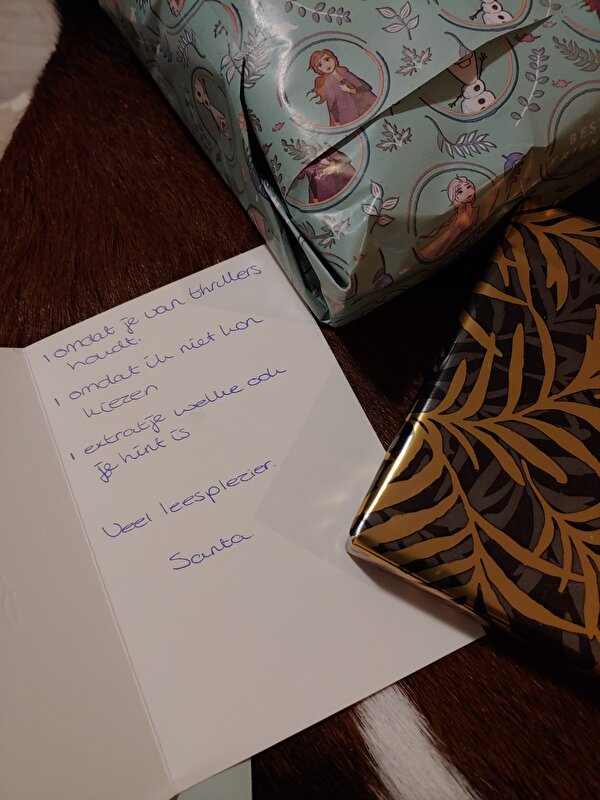 BEST
FRIEN
1 omdat je van thrillers
houdt.
1 omdat ik niet kon
kiezen
1 extratje welke ook
je hint is
Veel leesplezier.
Santa